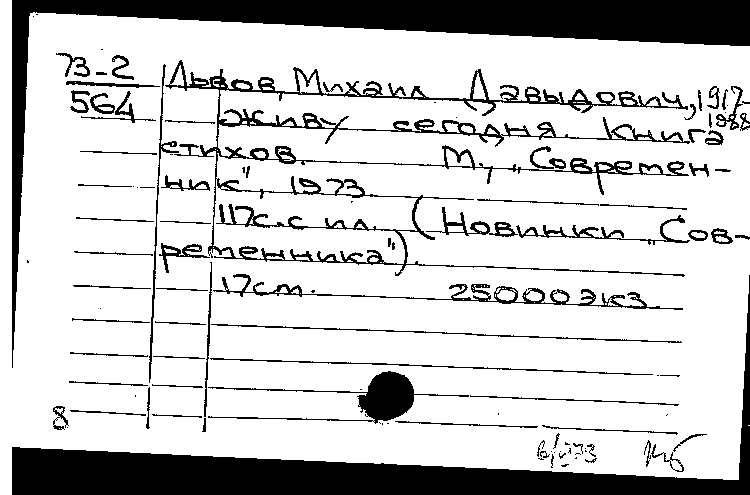 73-2
564
Львов, Михаил Давыдович, 1917-
1988
Живу сегодня. Книга
стихов. М., „Современ-
ник", 1973.
117с. с ил. (Новинки „Сов-
ременника").
17см. 25000 экз.
8